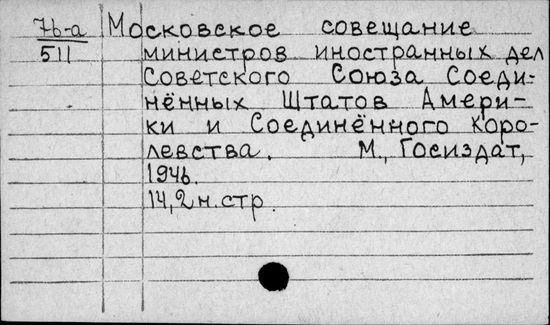 76-а Московское совещание
511 министров иностранных дел
Советского Союза Соеди-
нённых Штатов Амери-
ки и Соединённого Коро-
левства. М., Госиздат,
1946.
14,2 н.стр.